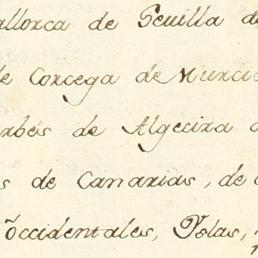 allorca de Seuilla de
de Corcega de Murcia
arbes de Algecira
s de Canarias, de
occidentales, Yslas,